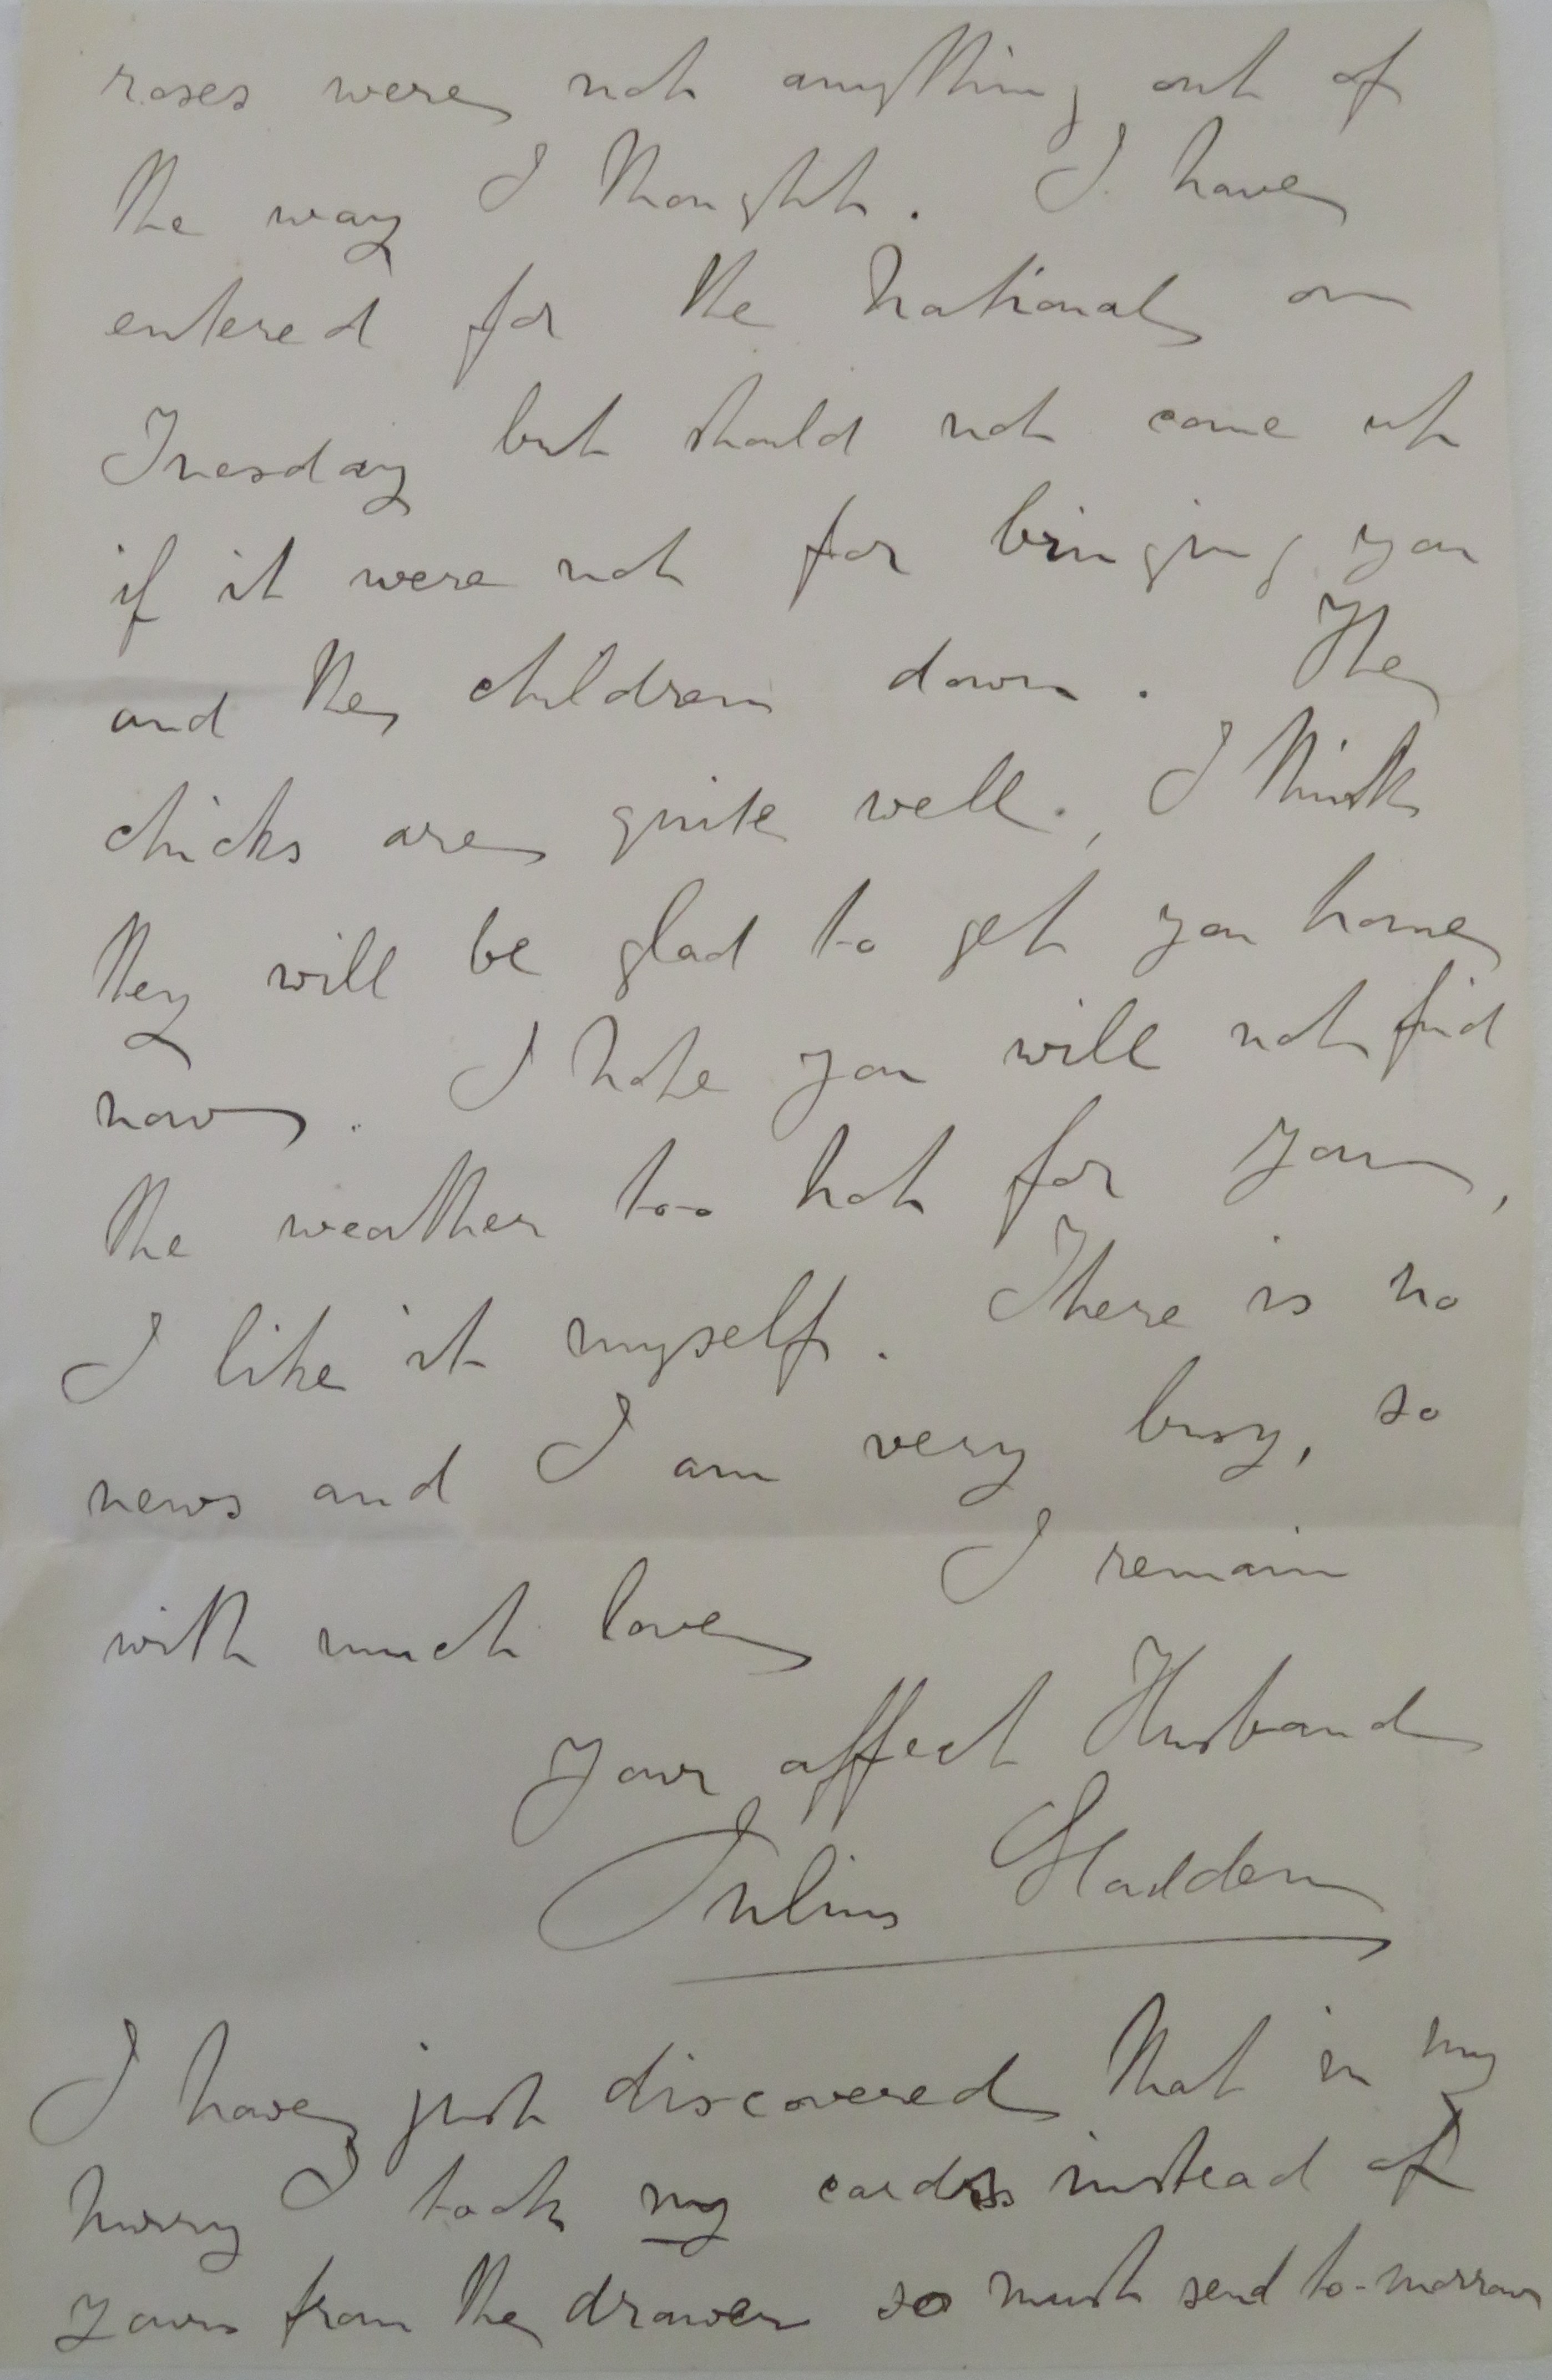 roses were not anything out of
the way I thought. I have
entered for the National on
Tuesday but should not come up
if it were not for bringing you
and the children down. The
chicks are quite well, I think
they will be glad to get you home
now. I hope you will not find
the weather too hot for you,
I like it myself. There is no
news and I am very busy, so
I remain
with much love
your affect Husband
Julius
I have just discovered that in my
hurry I took my cards instead of
yours from the drawer so must send to-morrow